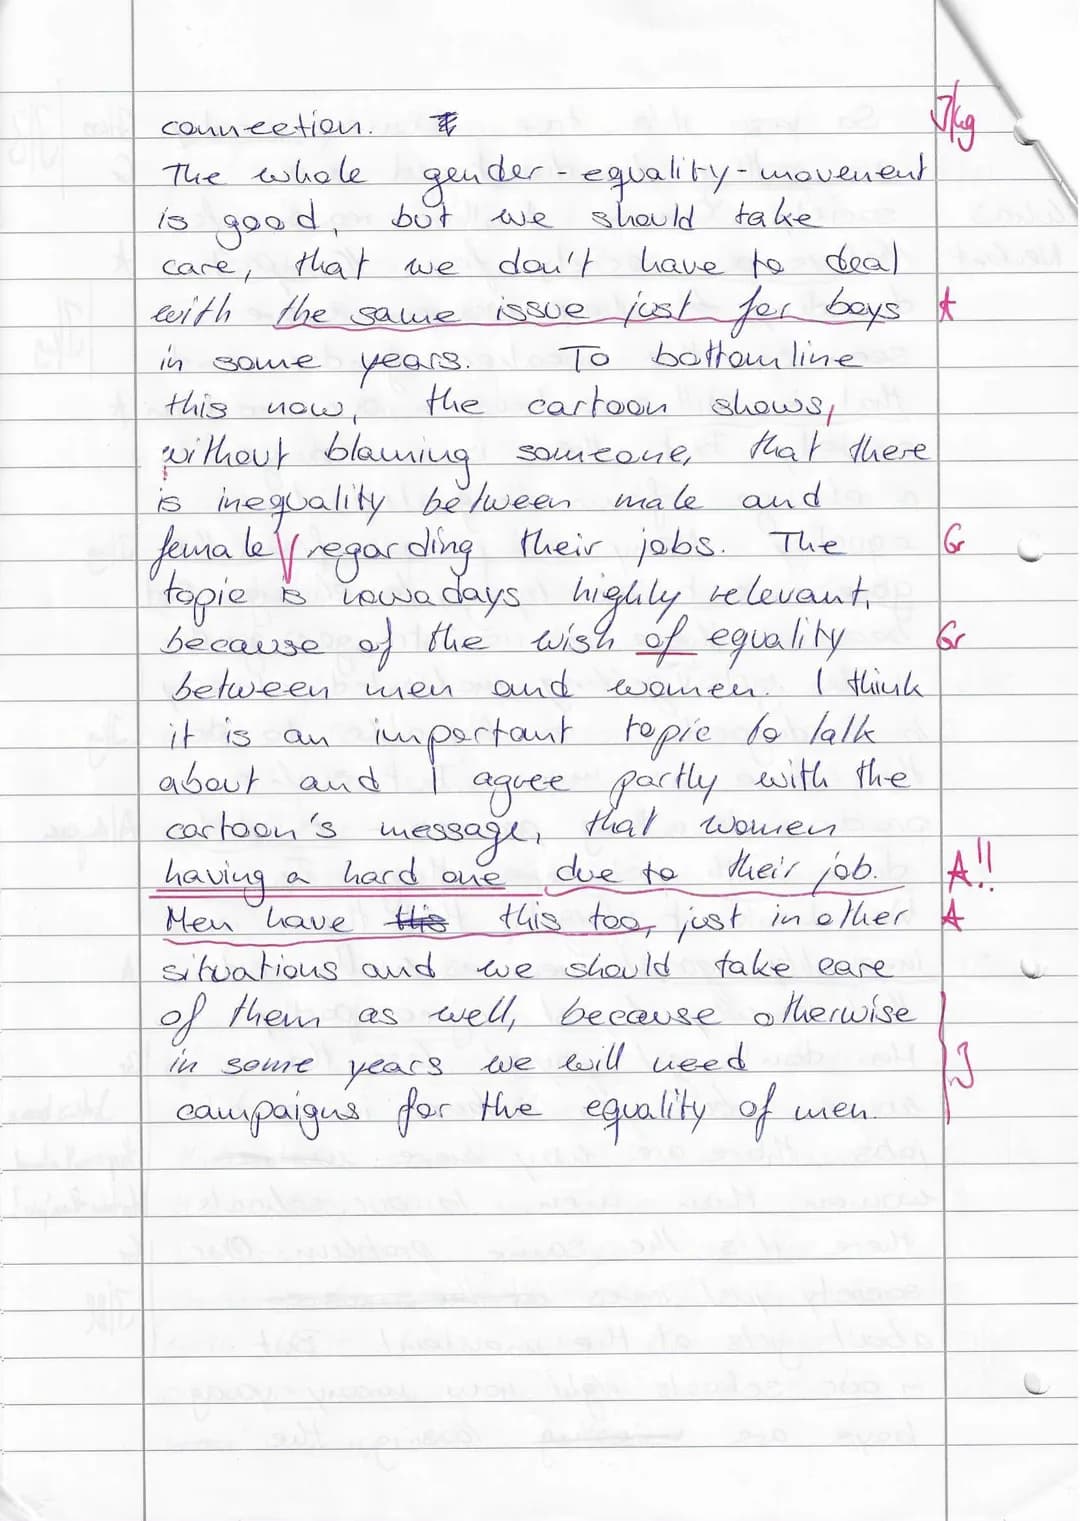 connection.
The whole gender-equality-movement
is good, but we should take
care, that we don't have to deal
with the same issue just for boys A
in some years. To bottomline
this now, the cartoon shows,
without blaming someone, that there
is inequality between male and
female regarding their jobs. The Gr
topic is nowadays highly relevant,
because of the wish of equality Gr
between men and women. I think
it is an important topic to talk
about and I agree partly with the
cartoon's message, that women
having a hard one due to their job. A!!
Men have this this too, just in other A
situations and we should take care
of them as well, because otherwise
in some years we will need J
campaigns for the equality of men.